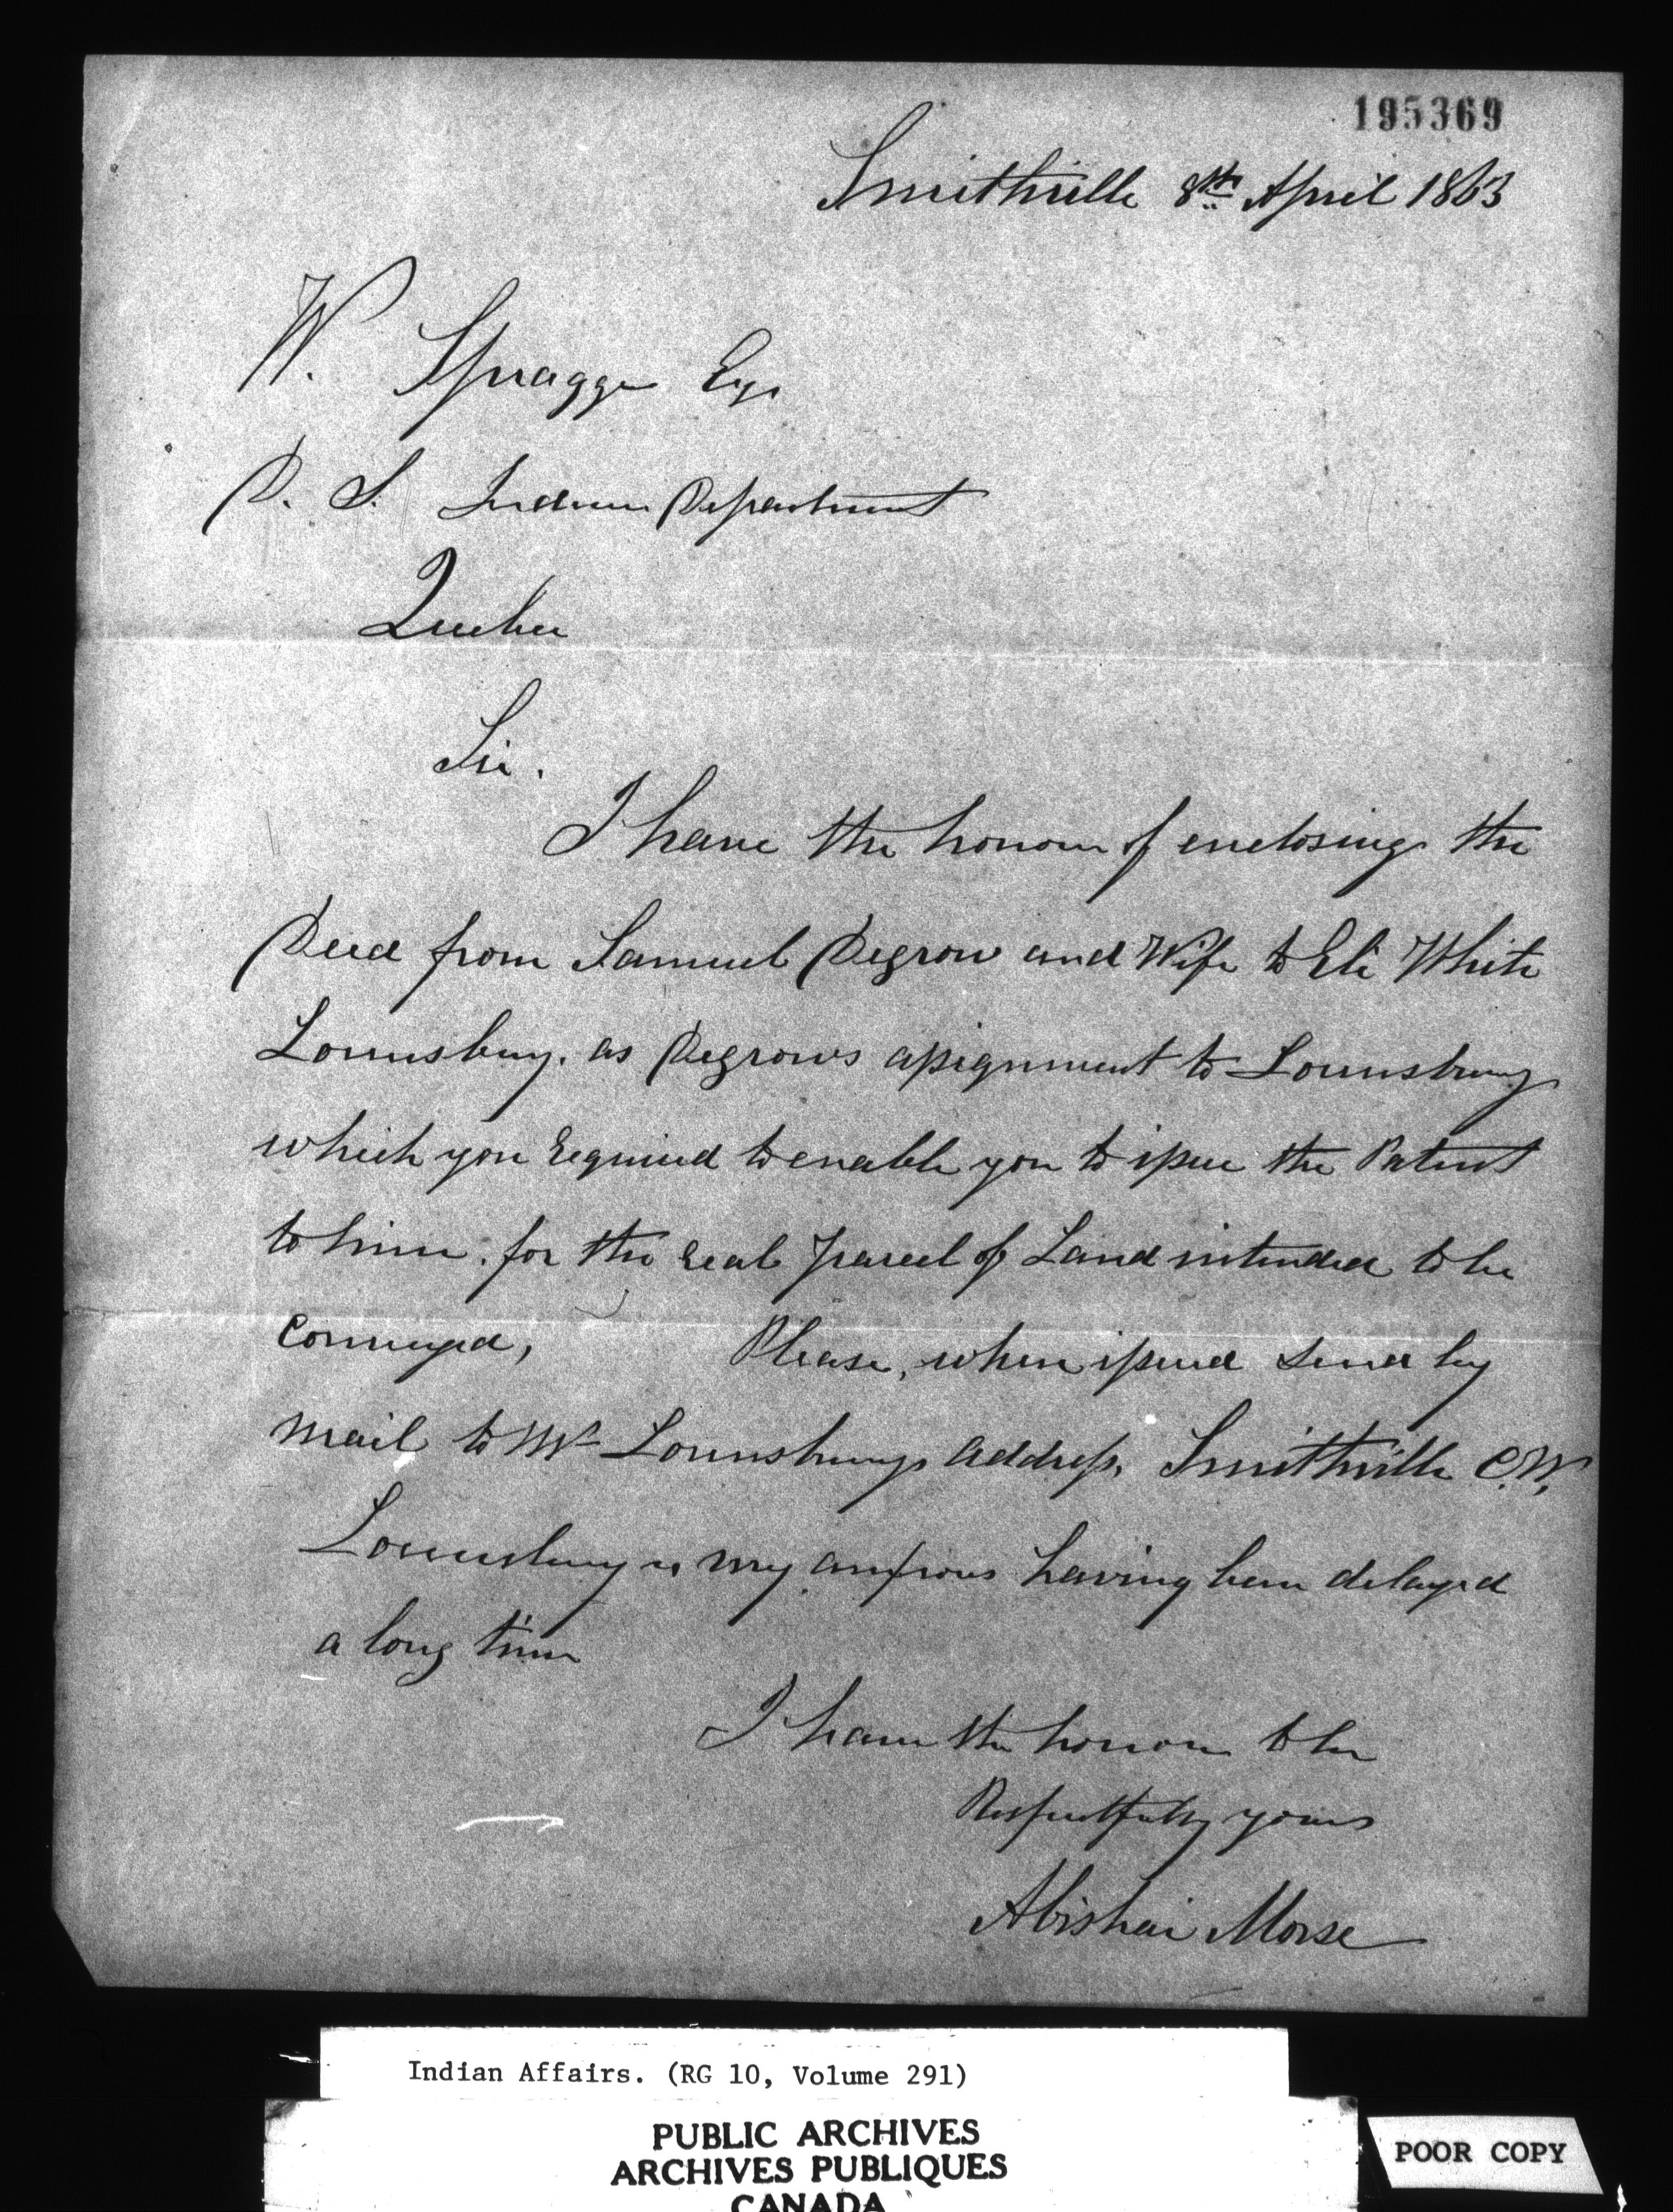 195369
Smithville 8th April 1863
W. Spragge Esqr
D. S. Indian Department
Quebec
Sir.
I have the honour of enclosing the
Deed from Samuel Degrow and Wife to Eli White
Lounsbury. as Degrows assignment to Lounsbury
which you required to enable you to issue the Patent
to him. for the real parcel of Land intended to be
Conveyed, Please, when issued send by
mail to Mr Lounsburys address, Smithville C.W.
Lounsbury is very anxious having been delayed
a long time
I have the honour to be
Respectfully yours
Abishai Morse
Indian Affairs. (RG 10, Volume 291)
PUBLIC ARCHIVES
ARCHIVES PUBLIQUES
CANADA
POOR COPY